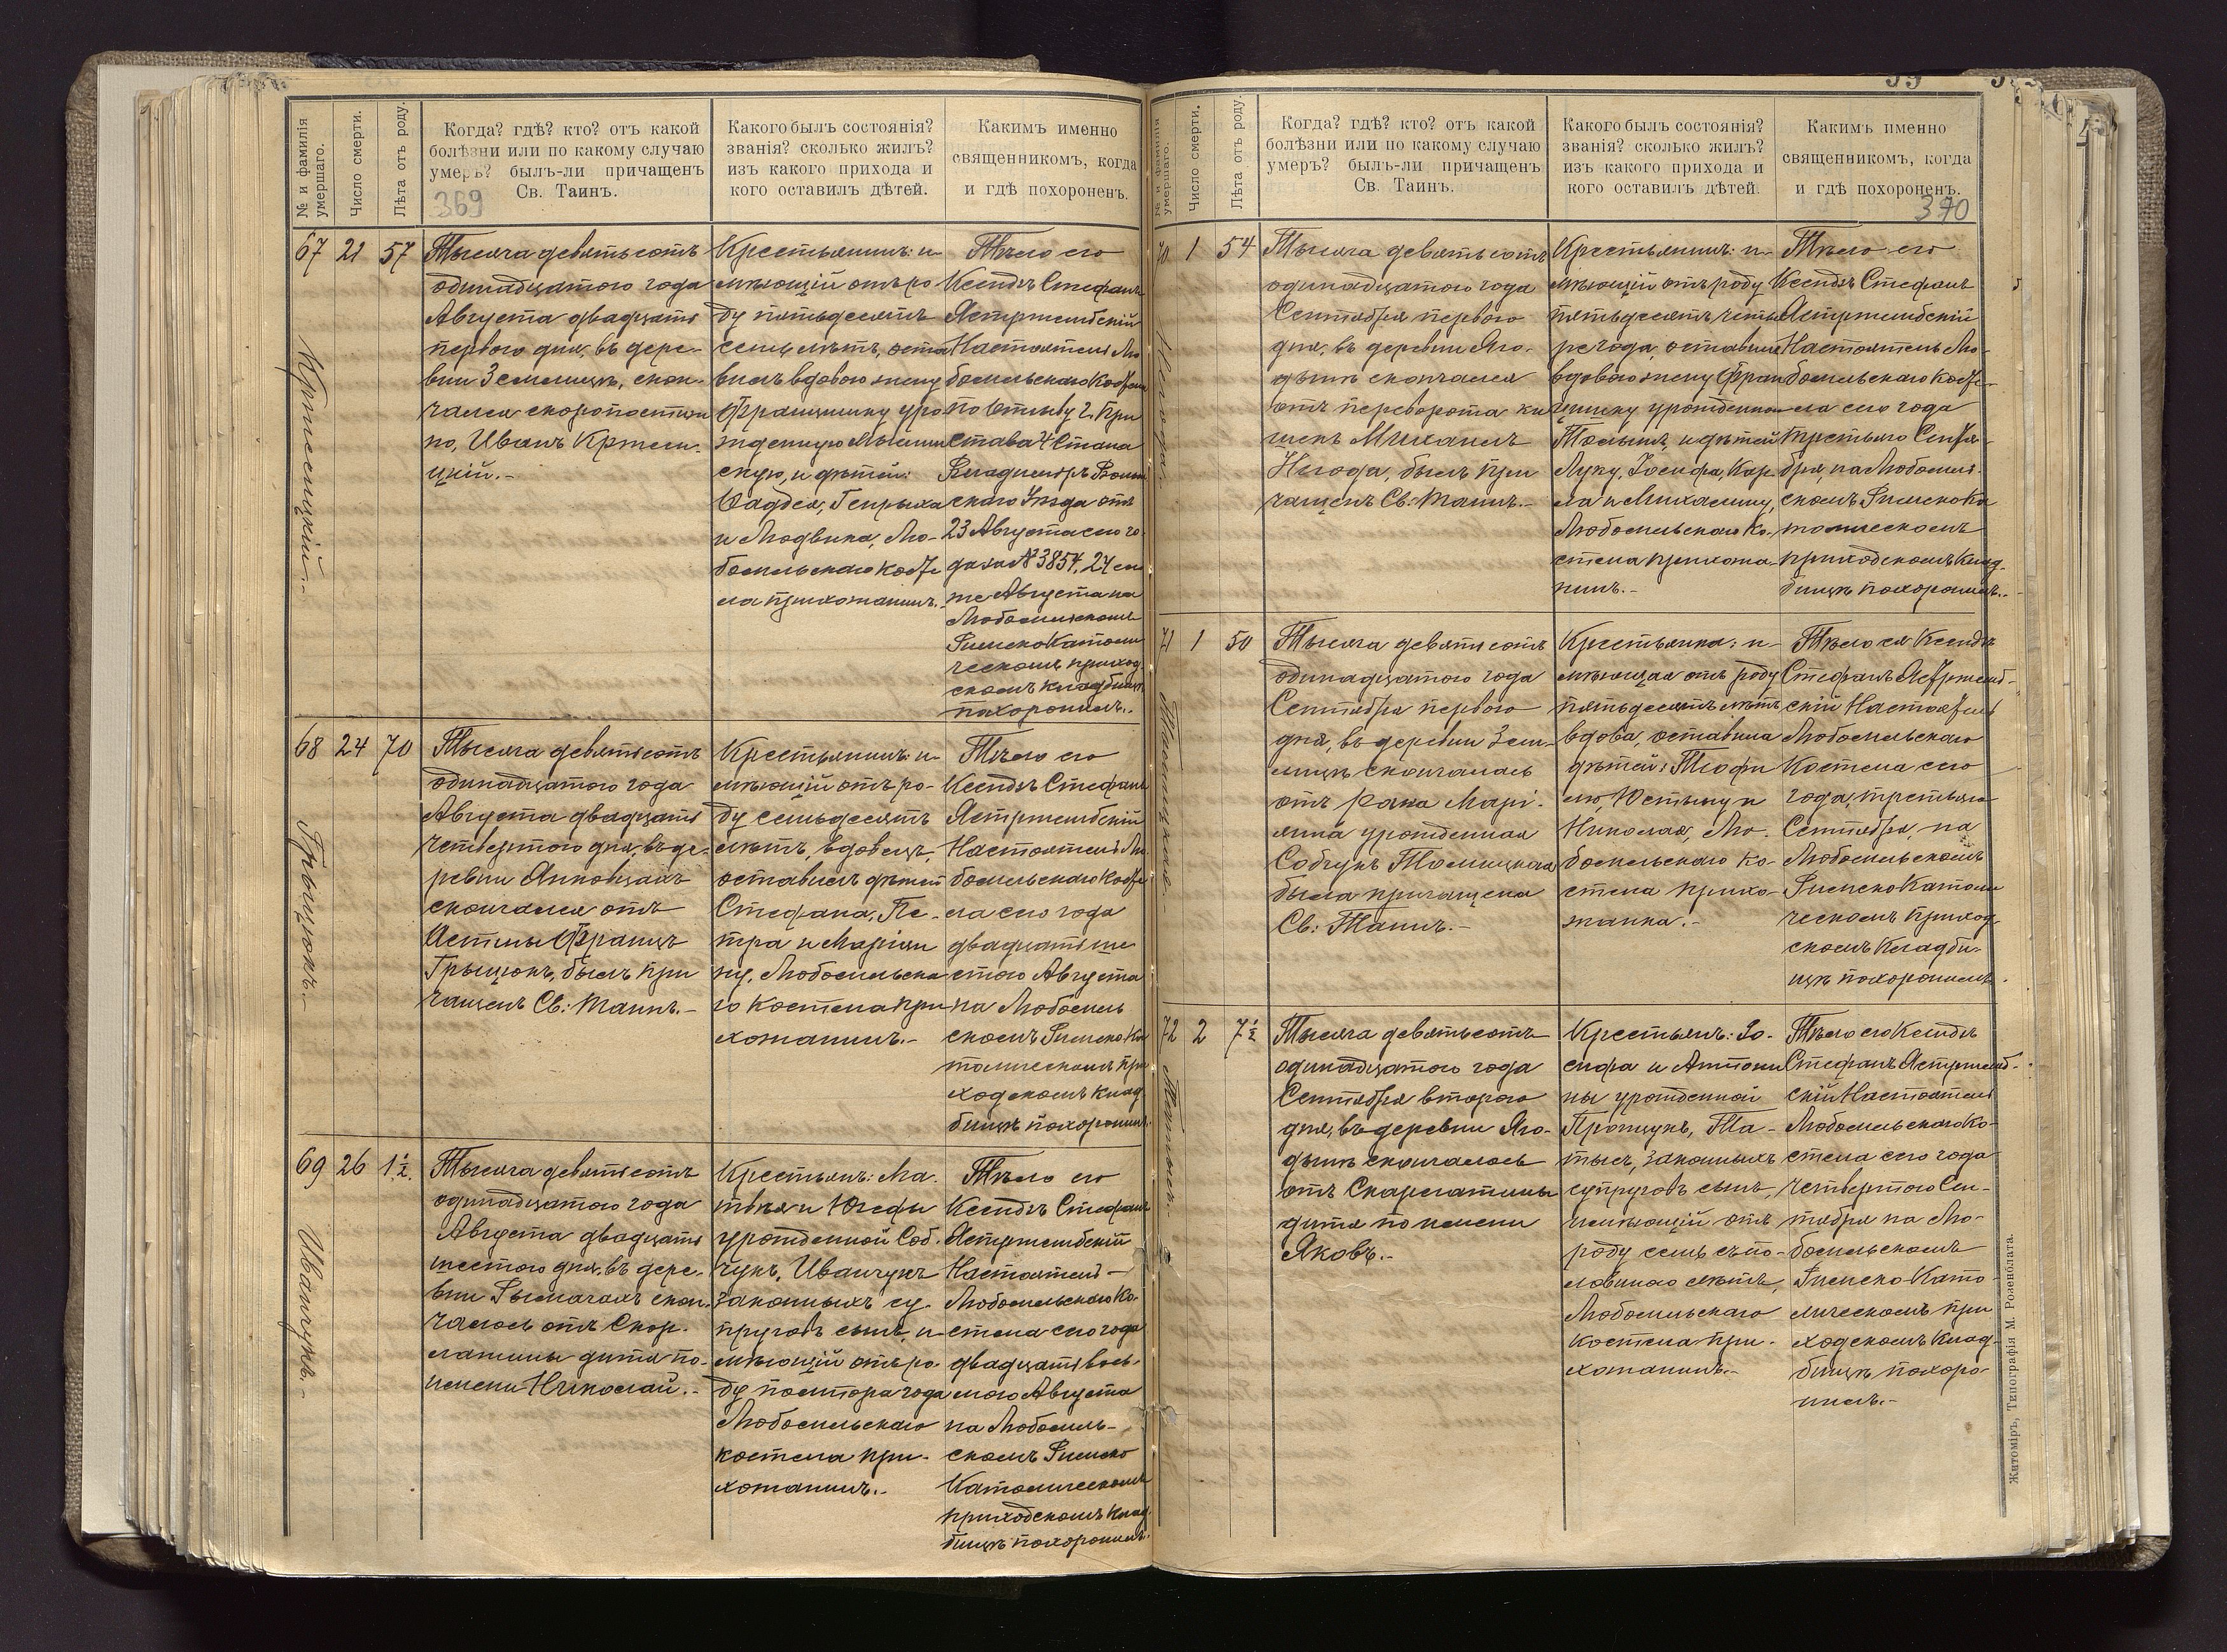 369
№ и фамилія умершаго.
Число смерти.
Лѣта отъ роду.
Когда? гдѣ? кто? отъ какой
болѣзни или по какому случаю
умеръ? былъ-ли причащенъ
Св. Таинъ.
Какого былъ состоянія?
званія? сколько жилъ?
изъ какого прихода и
кого оставилъ дѣтей.
Каким именно
священникомъ, когда
и гдѣ похороненъ.
67 21 57
Тысяча девятьсотъ
одинадцатого года
Августа двадцать
первого дня, въ дере-
вни Землицѣ, скон-
чался скоропостиж
но, Иванъ Кржеси-
цкій.-
Крестьянинъ: и-
мѣющій отъ ро-
ду пятьдесятъ
семь лѣтъ, оста
вилъ вдовою жену
Францишку уро
жденную
скую, и дѣтей:
Фаддея, Генрыха
и Людвика, Лю-
бомльскаго косте
ла прихожанинъ.-
Тѣло его
Ксендзъ Стефанъ
Ястржембскій
Настоятель Лю
бомльскаго косте
по отзыву г. При
става 4 Стана
Владиміръ Волын
скаго Уѣзда отъ
23 Августа сего го
да за № 3854, 24 сего
же Августа на
Любомльскомъ
Римско Католи
ческомъ приход
скомъ кладбищѣ
похоронилъ.-
68 24 70
Грыцюкъ.-
Тысяча девятьсотъ
одинадцатого года
Августа двадцать
четвертого дня, въ де-
ревни Янковцахъ
скончался отъ
Астмы Францъ
Грыцюкъ, былъ при
чащенъ Св: Таинъ.-
Крестьянинъ: и-
мѣющій отъ ро-
ду семьдесятъ
лѣтъ, вдовецъ,
оставилъ дѣтей
Стефана, Пе-
тра и Маріян
ну, Любомльска
го костела при-
хожанинъ.-
Тѣло его
Ксендзъ Стефанъ
Ястржембскій
Настоятель Лю
бомльскаго косте
ла сего года
двадцать ше
стого Августа
на Любомль
скомъ Римско-Ка
толическомъ при
ходскомъ клад
бищѣ похоронилъ.
69 26 1½.
Иванчукъ.-
Тысяча девятьсотъ
одинадцатого года
Августа двадцать
шестого дня, въ дере-
вни Рымачахъ скон-
чалось отъ Скор-
латины дитя по-
имени Николай.-
Крестьянъ: Ма-
твѣя и Юзефы
урожденной Соб-
чукъ, Иванчукъ
законныхъ су-
пруговъ сынъ, и-
мѣющій отъ ро-
ду полтора года
Любомльскаго
костела при-
хожанинъ.-
Тѣло его
Ксендзъ Стефанъ
Ястржембскій
Настоятель
Любомльскаго Ко-
стела сего года
двадцать вось-
мого Августа
на Любомль-
скомъ Римско
Католическомъ
приходскомъ клад
бищѣ похоронилъ.
370
№ и фамилія умершаго.
Число смерти.
Лѣта отъ роду.
Когда? гдѣ? кто? отъ какой
болѣзни или по какому случаю
умеръ? былъ-ли причащенъ
Св. Таинъ.
Какого былъ состоянія?
званія? сколько жилъ?
изъ какого прихода и
кого оставилъ дѣтей.
Каким именно
священникомъ, когда
и гдѣ похороненъ.
70 1 54
Тысяча девятьсотъ
одинадцатого года
Сентября первого
дня, въ деревни Яго-
дынѣ скончался
отъ переворота ки
шекъ Михаилъ
Ньгода, былъ при
чащенъ Св: Таинъ.-
Крестьянинъ: и-
мѣющій отъ роду
пятьдесятъ четы
ре года, оставилъ
вдовою жену Фран
цишку урожденную
и дѣтей
Луку, Іосифа, Кар-
ла и Михалину,
Любомльскаго ко-
стела прихожа-
нинъ.-
Тѣло его
Ксендзъ Стефанъ
Ястржембскій
Настоятель Лю-
бомльскаго косте-
ла сего года
третьяго Сентя-
бря, на Любомль-
скомъ Римско Ка
толическомъ
приходскомъ клад-
бищѣ похоронилъ.-
71 1 50
Тысяча девятьсотъ
одинадцатого года
Сентября первого
дня, въ деревни Зем-
лицѣ скончалась
отъ Рака Марі-
янна урожденная
Собчукъ
была причащена
Св: Таинъ.-
Крестьянка: и-
мѣющая отъ роду
пятьдесятъ лѣтъ
вдова, оставила
дѣтей: Теофи
лю, Юстыну и
Николая, Лю-
бомльскаго ко-
стела прихо-
жанка.-
Тѣло ея Ксендзъ
Стефанъ Ястржемб-
скій Настоятель
Любомльскаго
Костела сего
года, третьяго
Сентября, на
Любомльскомъ
Римско Католи
ческомъ приход
скомъ кладби-
щѣ похоронилъ.
72 2 7½
Тысяча девятьсотъ
одинадцатого года
Сентября второго
дня, въ деревни Яго-
дынѣ скончалось
отъ Скарлатины
дитя по имени
Яковъ.-
Крестьянъ: Іо-
сифа и Антони
ны урожденной
законныхъ
супруговъ сынъ,
имѣющій отъ
роду семь съ по-
ловиною лѣтъ,
Любомльскаго
костела при-
хожанинъ.-
Тѣло его Ксендзъ
Стефанъ Ястржемб-
скій Настоятель
Любомльскаго Ко-
стела сего года
четвертого Сен-
тября на Лю-
бомльскомъ
Римско-Като-
лическомъ при
ходскомъ клад-
бищѣ похоро-
нилъ.-
Житоміръ, Типографія М. Розенблата.